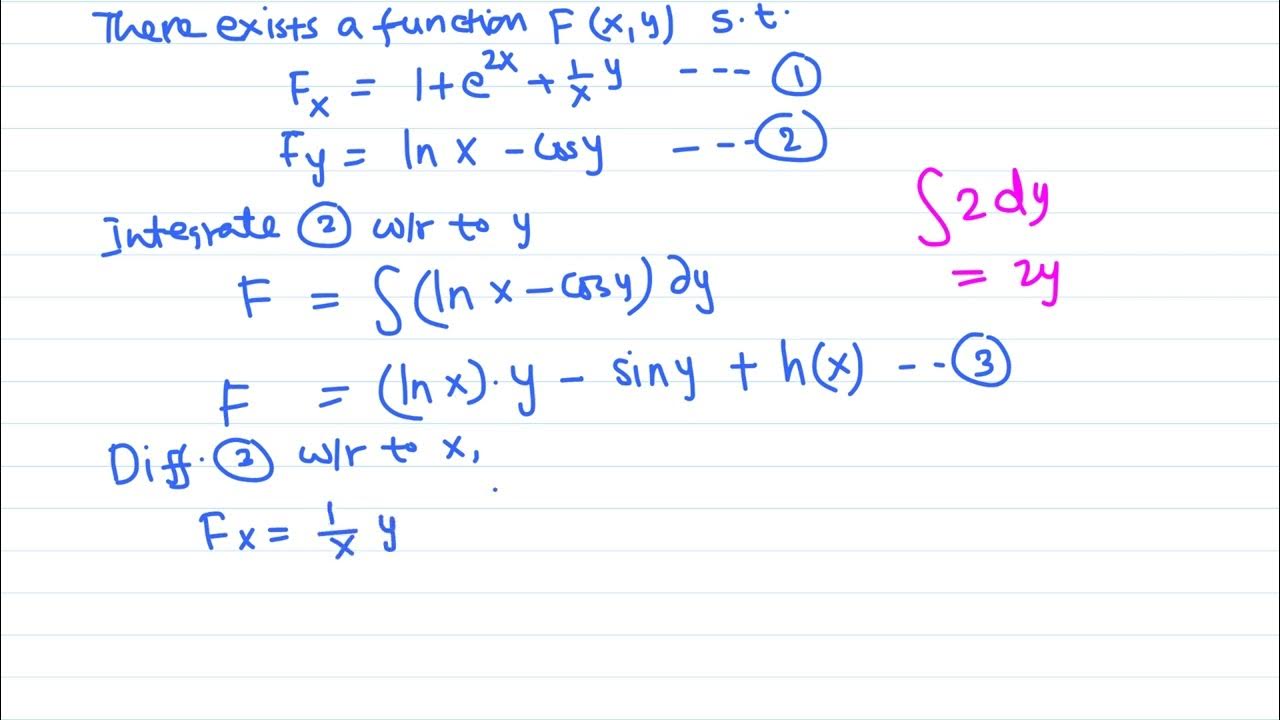 There exists a function F(x,y) s.t.
Fₓ = 1+e²ˣ + 1/x y --- ①
Fy = ln x - cosy - -- ②
∫2dy
Integrate ② w/r to y
= 2y
F = ∫(ln x - cosy) ∂y
F = (ln x)·y - siny + h(x) -- ③
Diff. ② w/r to x,
Fx = 1/x y